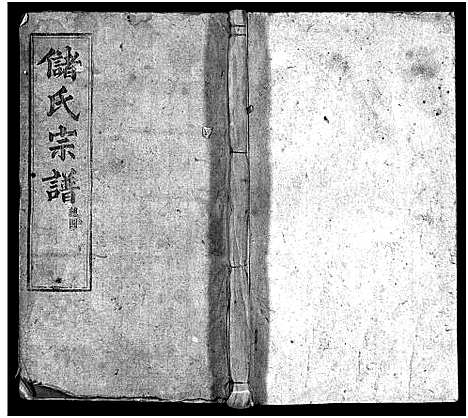 儲氏宗譜